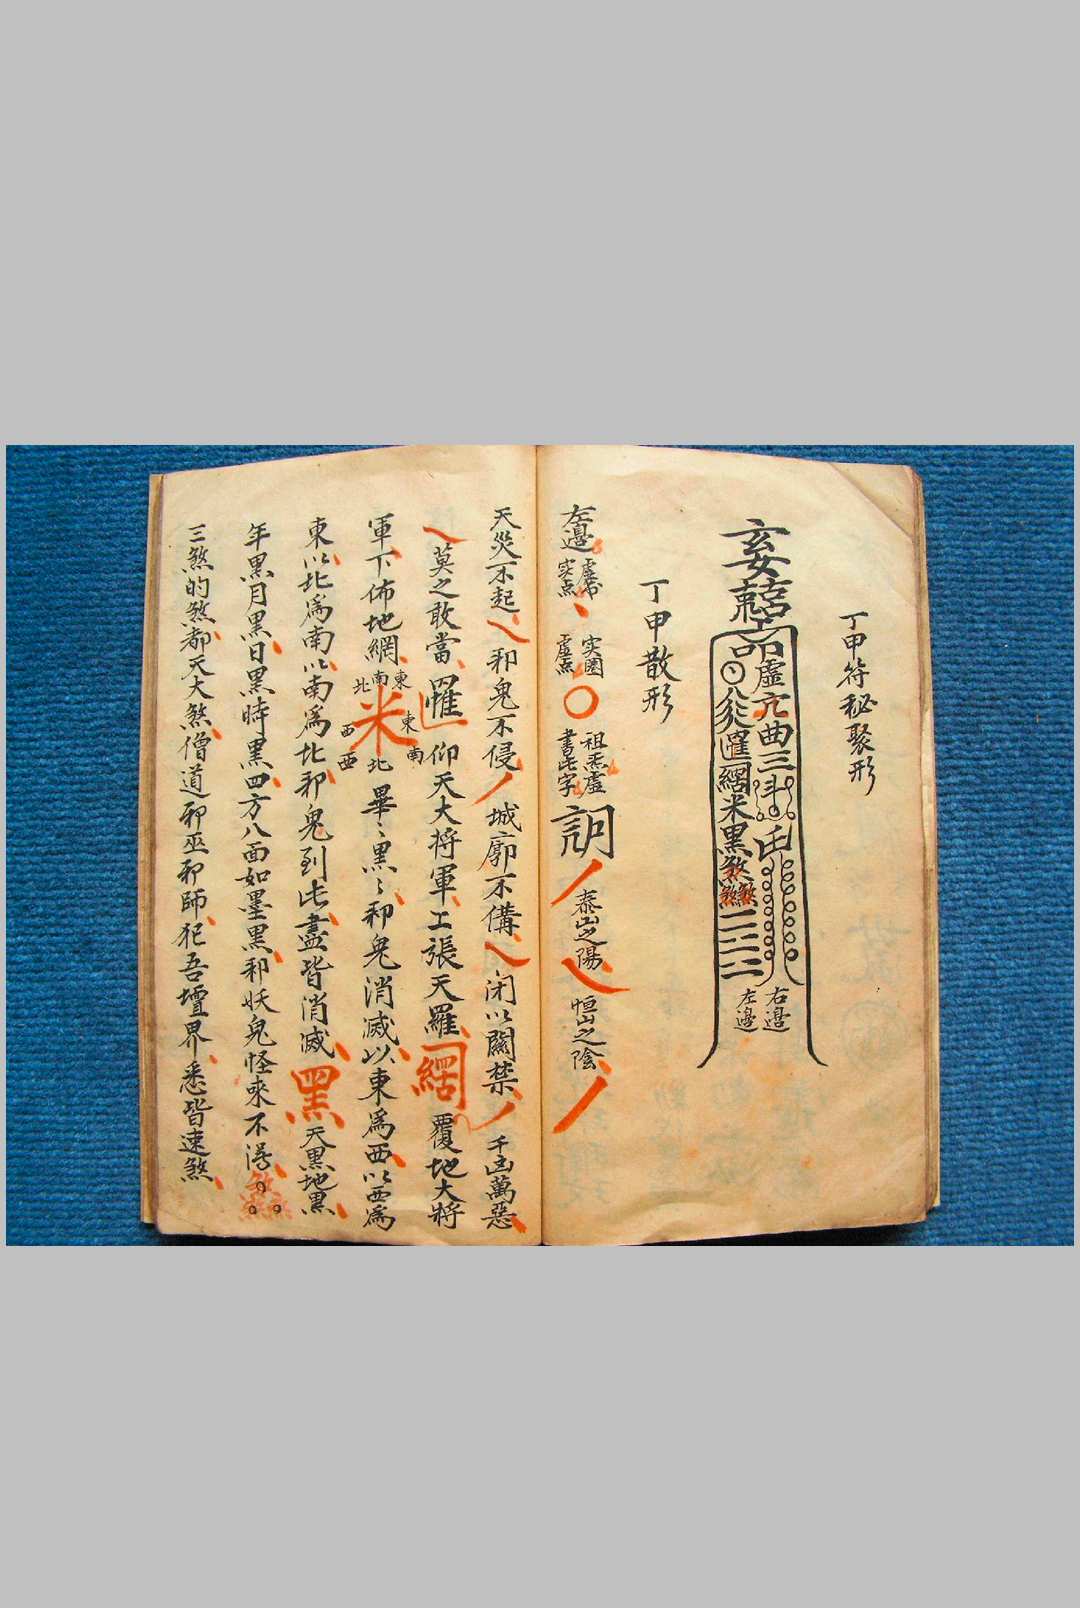 丁甲符秘聚形
敕令
虛
曲三斗
米黑煞
右邉
左邉
丁甲散形
左邉
虛点
実圏
祖炁虛書此字
泰山之陽 恒山之陰
天災不起 邪鬼不侵 城廓不備 闭以關禁 千凶萬惡
莫之敢當 仰天大将軍工張天羅 覆地大将
軍下佈地網 米 畢〻黑〻邪鬼消滅以東爲西以西爲
北南東
東南
西西北
東以北爲南以南爲北邪鬼到此盡皆消滅 黑 天黑地黑
年黑月黑日黑時黑四方八面如墨黑邪妖鬼怪來不得
三煞的煞都天大煞僧道邪巫邪師犯吾壇界悉皆速煞